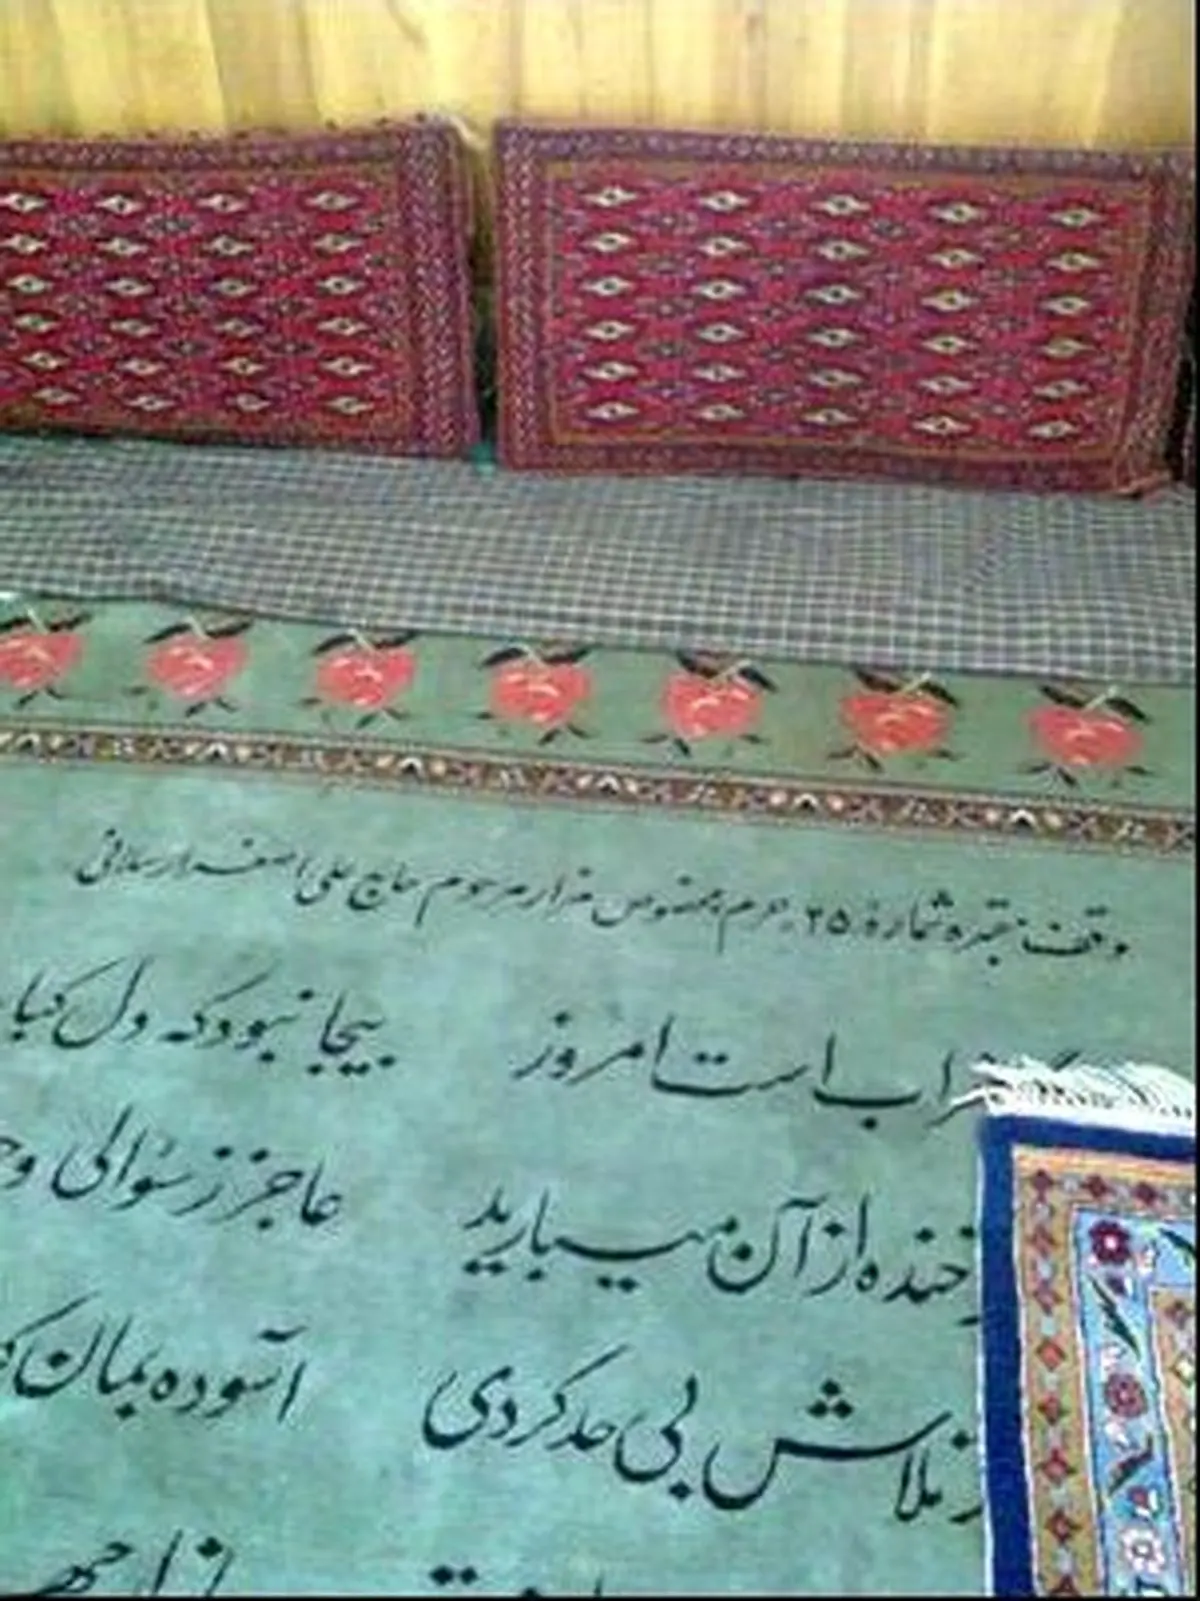 وقف مقبره شماره ۲۵ حرم مخصوص مزار مرحوم حاج علی اصغر ارسلانی
اب است امروز بیجا نبود که دل کبا
خنده از آن میبارید عاجز ز سئوالی و
تلاش بی حد کردی آسوده بمان